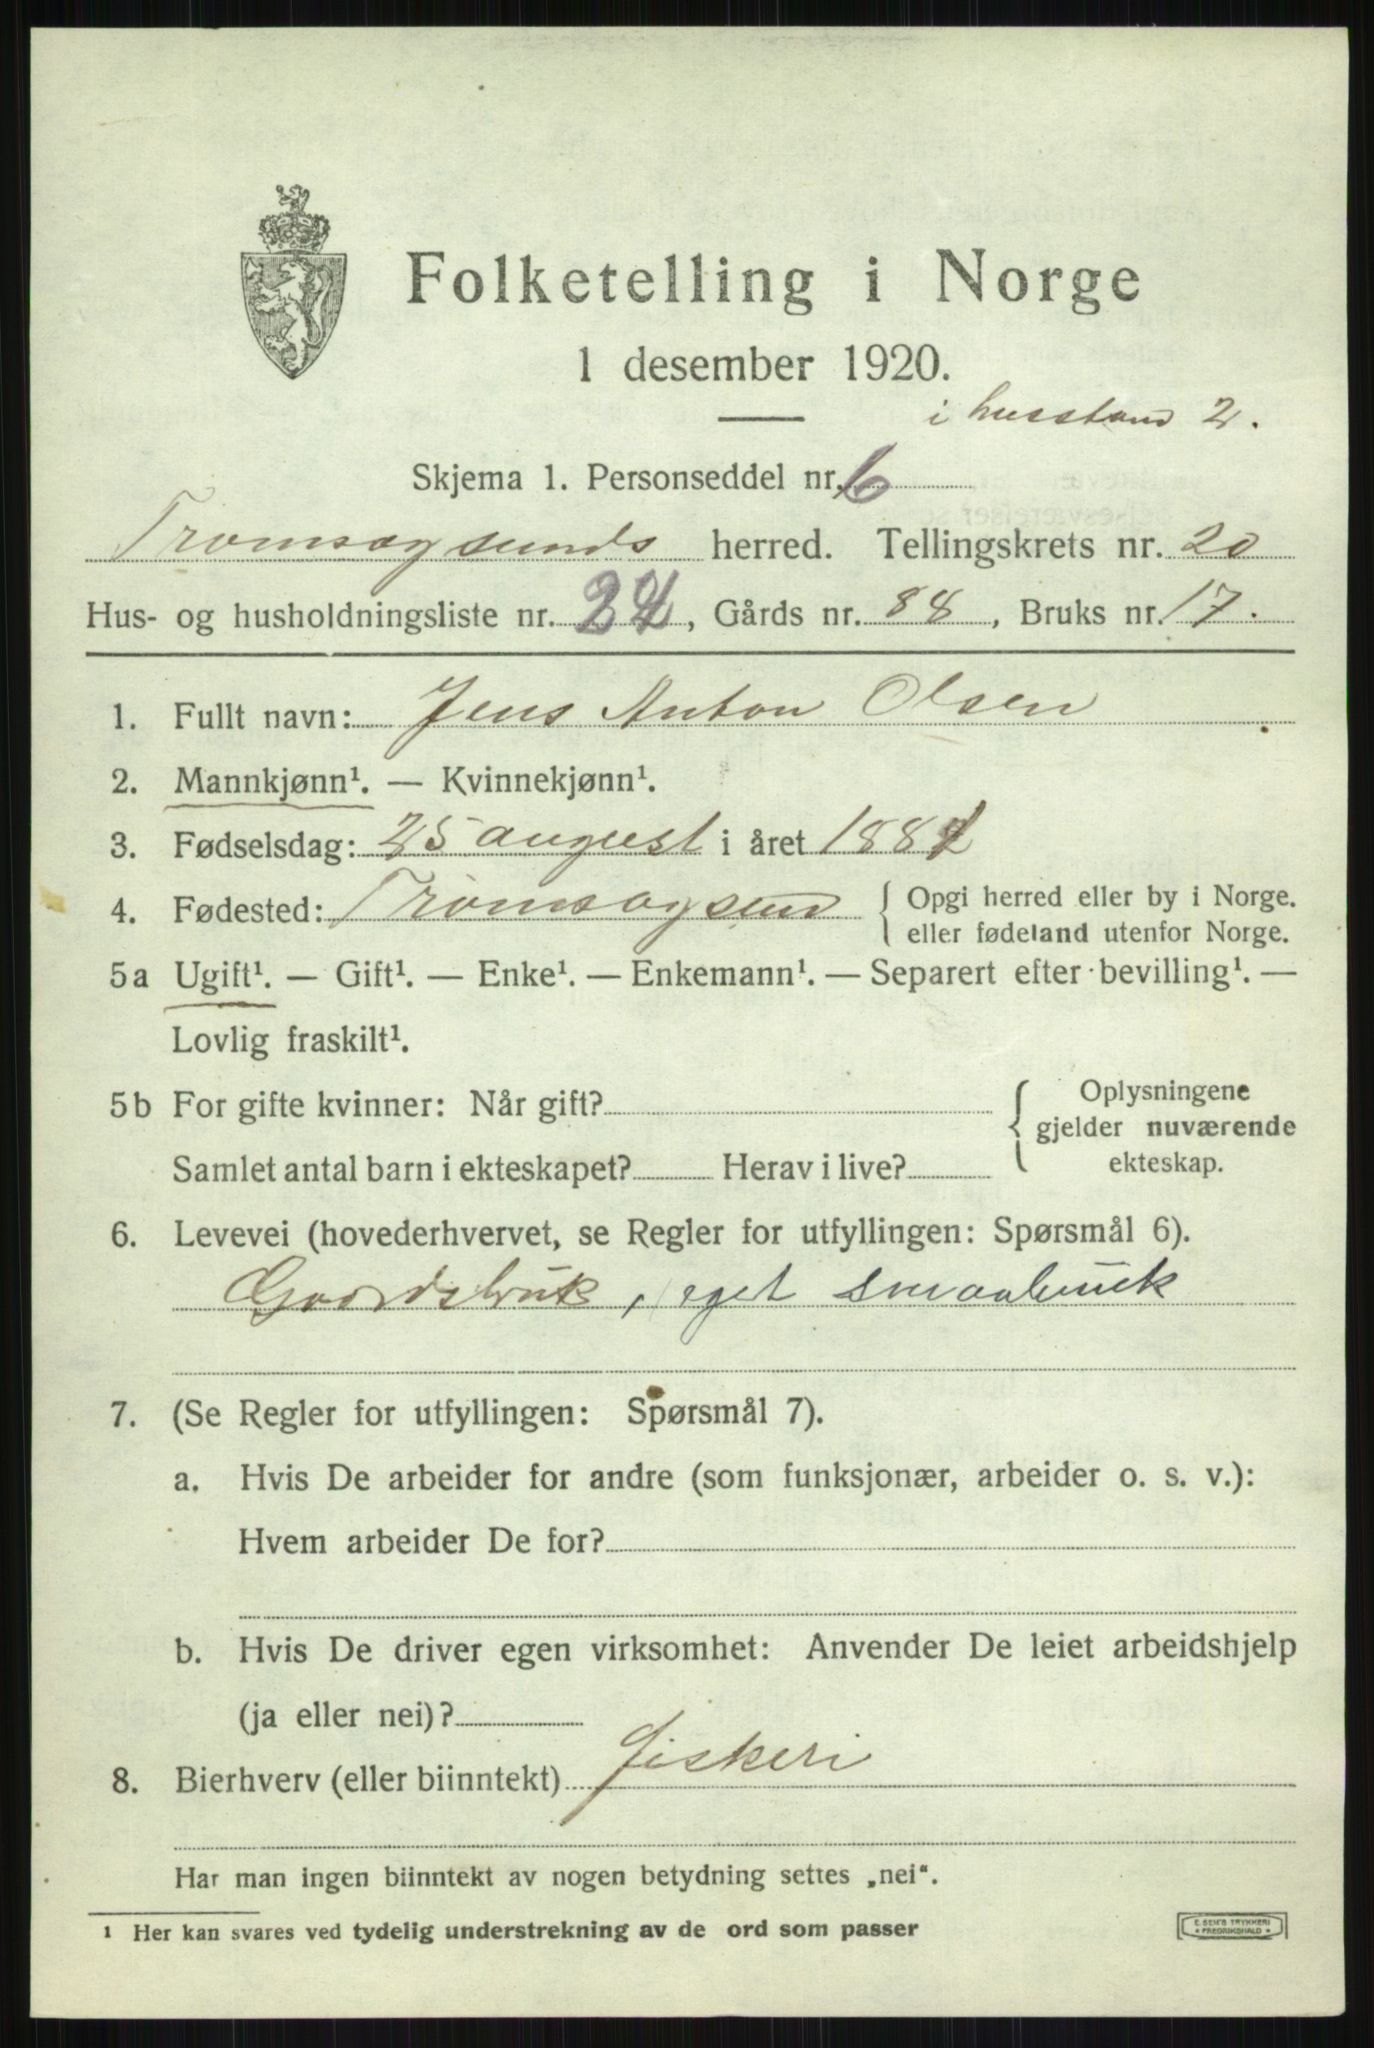 Folketelling i Norge
1 desember 1920.
i husstand 2.
Skjema 1. Personseddel nr. 6
Tromsøysunds herred. Tellingskrets nr. 20
Hus- og husholdningsliste nr. 24, Gårds nr. 88, Bruks nr. 17.
1. Fullt navn: Jens Anton Olsen
2. Mannkjønn¹. — Kvinnekjønn¹.
3. Fødselsdag: 25 august i året
4. Fødested: Tromsøysund { Opgi herred eller by i Norge.
eller fødeland utenfor Norge.
5a Ugift¹. — Gift¹. — Enke¹. — Enkemann¹. — Separert efter bevilling¹. —
Lovlig fraskilt¹.
5b For gifte kvinner: Når gift? { Oplysningene
gjelder nuværende
Samlet antal barn i ekteskapet? Herav i live? ekteskap.
6. Levevei (hovederhvervet, se Regler for utfyllingen: Spørsmål 6).
Gaardsbruk, eget smaabruk
7. (Se Regler for utfyllingen: Spørsmål 7).
a. Hvis De arbeider for andre (som funksjonær, arbeider o. s. v.):
Hvem arbeider De for?
b. Hvis De driver egen virksomhet: Anvender De leiet arbeidshjelp
(ja eller nei)?
8. Bierhverv (eller biinntekt) Fiskeri
Har man ingen biinntekt av nogen betydning settes „nei“.
¹ Her kan svares ved tydelig understrekning av de ord som passer
E. SEM'S TRYKKERI
* FREDRIKSHALD *